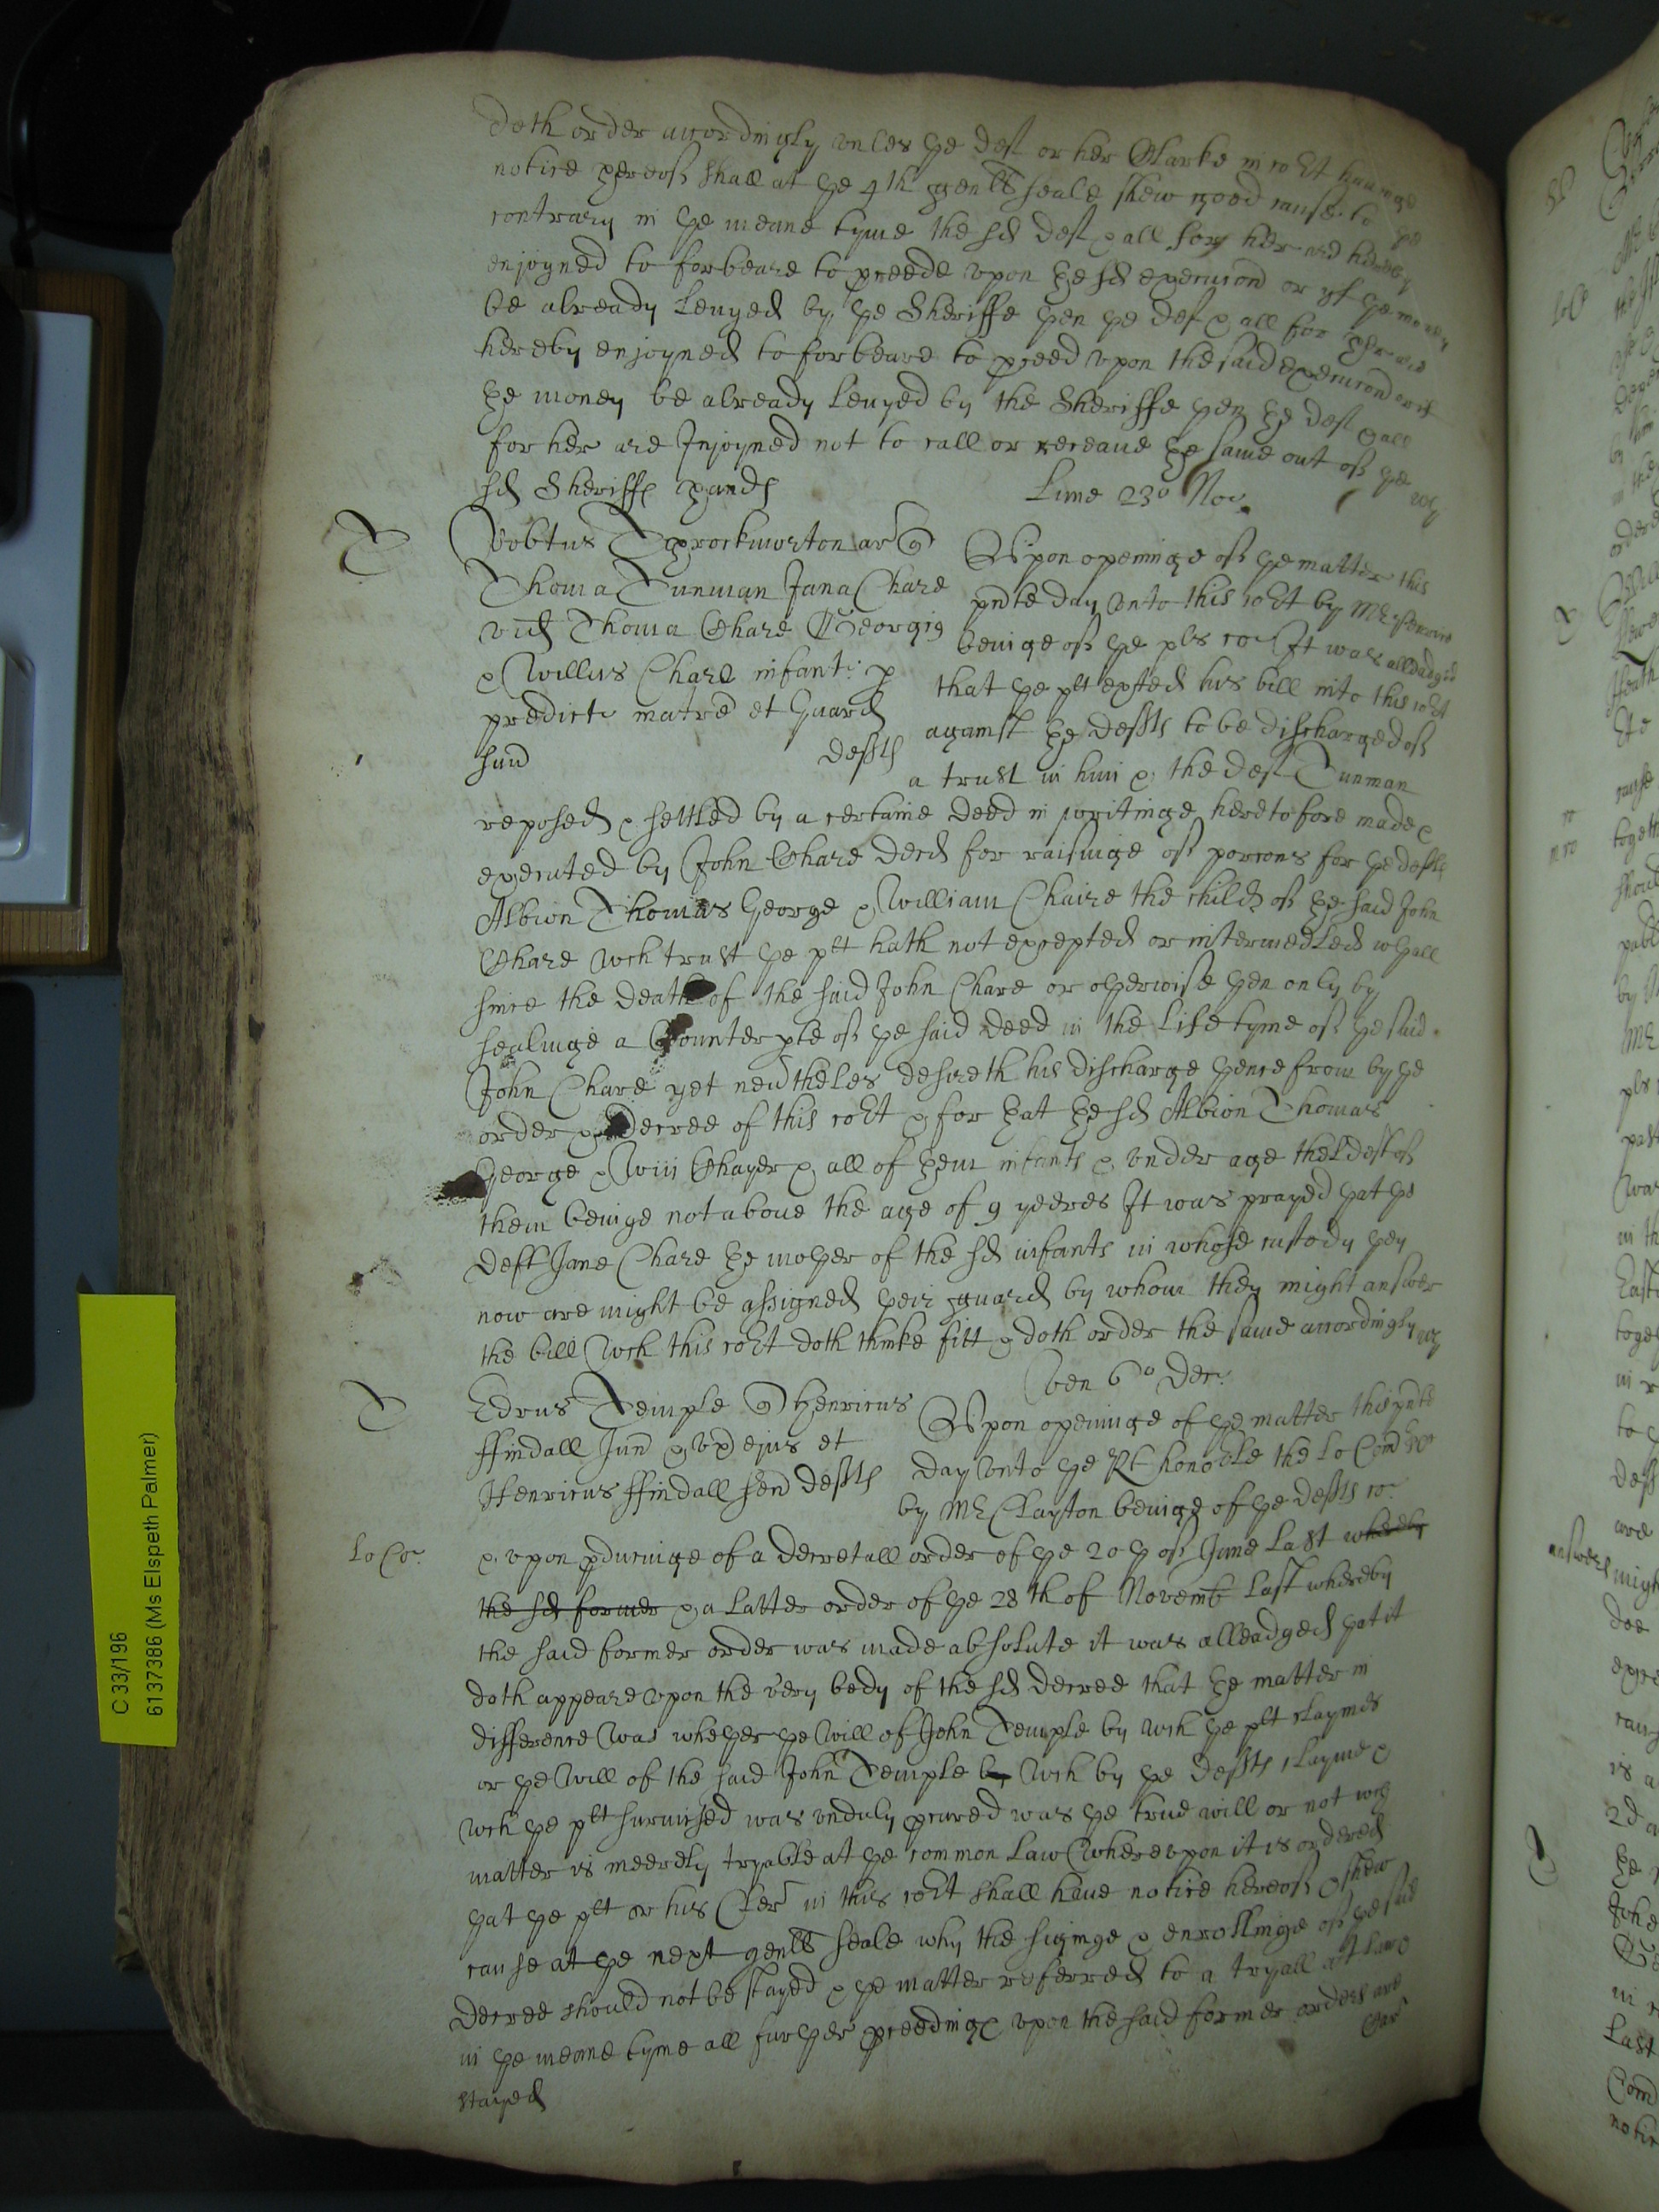 doth order accordingly vnles ye deft or her Clarke in cort haueinge
notice thereof shall at ye 4th genll seale shew good cause to ye
contrary in ye meane tyme the sd deft & all for her are hereby
enjoyned to forbeare to pceede vpon ye sd execucion or yf ye money
be already leuyed by ye Sheriffe yen ye deft & all for her are
hereby enjoyned to forbeare to pceed vpon the said execucion or if
ye money be already leuyed by the Sheriffe yen ye deft & all
for her are Injoyned not to call or receaue ye same out of ye
sd Sheriffs hands
Lune 23o Nov.
T
Robtus Throckmorton ar
Thoma Tunman Jana Chare
vid Thoma Chare Georgis
& Willms Chare infant: p
predict matre et Guard
suu
defts
Vpon openinge of ye matter this
pnte day vnto this cort by Mr
beinge of ye pls co It was alleadged
that ye plt exhted his bill into this cort
against ye defts to be discharged of
a trust in him & the deft Tunman
reposed & settled by a certaine deed in writinge heretofore made &
executed by John Chare decd for raisinge of porcons for ye defts
Albion Thomas George & William Chaire the child of ye said John
Chare wch trust ye plt hath not excepted or intermedled wthall
since the death of the said John Chare or otherwise yen only by
sealinge a Counter pte of ye said deed in the life tyme of ye said
John Chare yet neutheles desireth his discharge hence from by ye
order & decree of this cort & for yat ye sd Albion Thomas
George & Wm Chayer & all of yem infants & vnder age theldest of
them beinge not aboue the age of 9 yeeres It was prayed yat ye
deft Jane Chare ye mother of the sd infants in whose custody yey
now are might be assigned yeir guard by whom they might answer
the bill wch this cort doth thinke fitt & doth order the same accordingly
Ven 6o Dec.
T
Edrus Temple Henricus
ffindall Jun & vx ejus et
Henricus ffindall sen defts
Vpon openinge of ye matter this pnte
day vnto ye Rt honoble the Lo Comrs
by Mr Clayton beinge of ye defts co
Lo Co:
& vpon pducinge of a decretall order of ye 20th of June last whereby
the sd former & a latter order of ye 28th of Novemb last whereby
the said former order was made absolute it was alleadged yat it
doth appeare vpon the very body of the sd decree that ye matter in
difference was whether ye will of John Temple by wch ye plt claymes
or ye will of the said John Temple by wch by ye defts clayme &
wch ye plt surmised was vnduly pcured was ye true will or not wch
matter is meerely tryable at ye common law wherevpon it is ordered
yat ye plt or his Cler in this cort shall haue notice hereof & shew
cause at ye next genll seale why the signinge & enrollinge of ye said
decree should not be stayed & ye matter referred to a tryall att lawe
in ye meane tyme all further pceedings vpon the said former orders are
stayed
C 33/196
6137386 (Ms Elspeth Palmer)